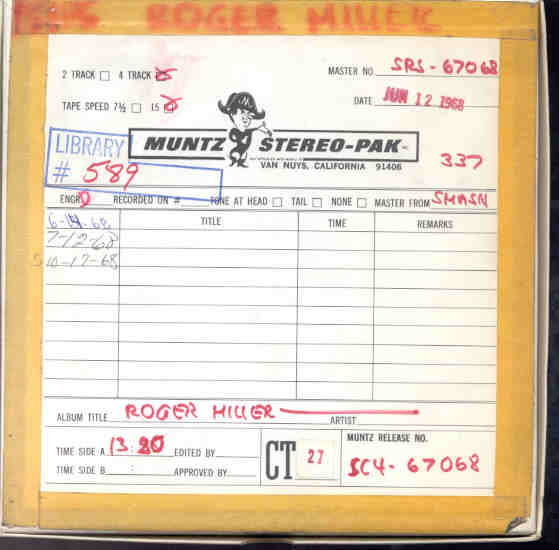 ROGER MILLER
2 TRACK 4 TRACK
MASTER NO. SRS-67068
TAPE SPEED 7½ 15
DATE JUN 12 1968
LIBRARY
# 589
MUNTZ STEREO-PAK INC.
VAN NUYS, CALIFORNIA 91406
337
ENGR RECORDED ON # TONE AT HEAD TAIL NONE MASTER FROM SMASH
TITLE TIME REMARKS
7-12-68
10-17-68
ALBUM TITLE ROGER MILLER ARTIST
TIME SIDE A 13:20 EDITED BY
TIME SIDE B : APPROVED BY
CT 27
MUNTZ RELEASE NO.
SC4-67068